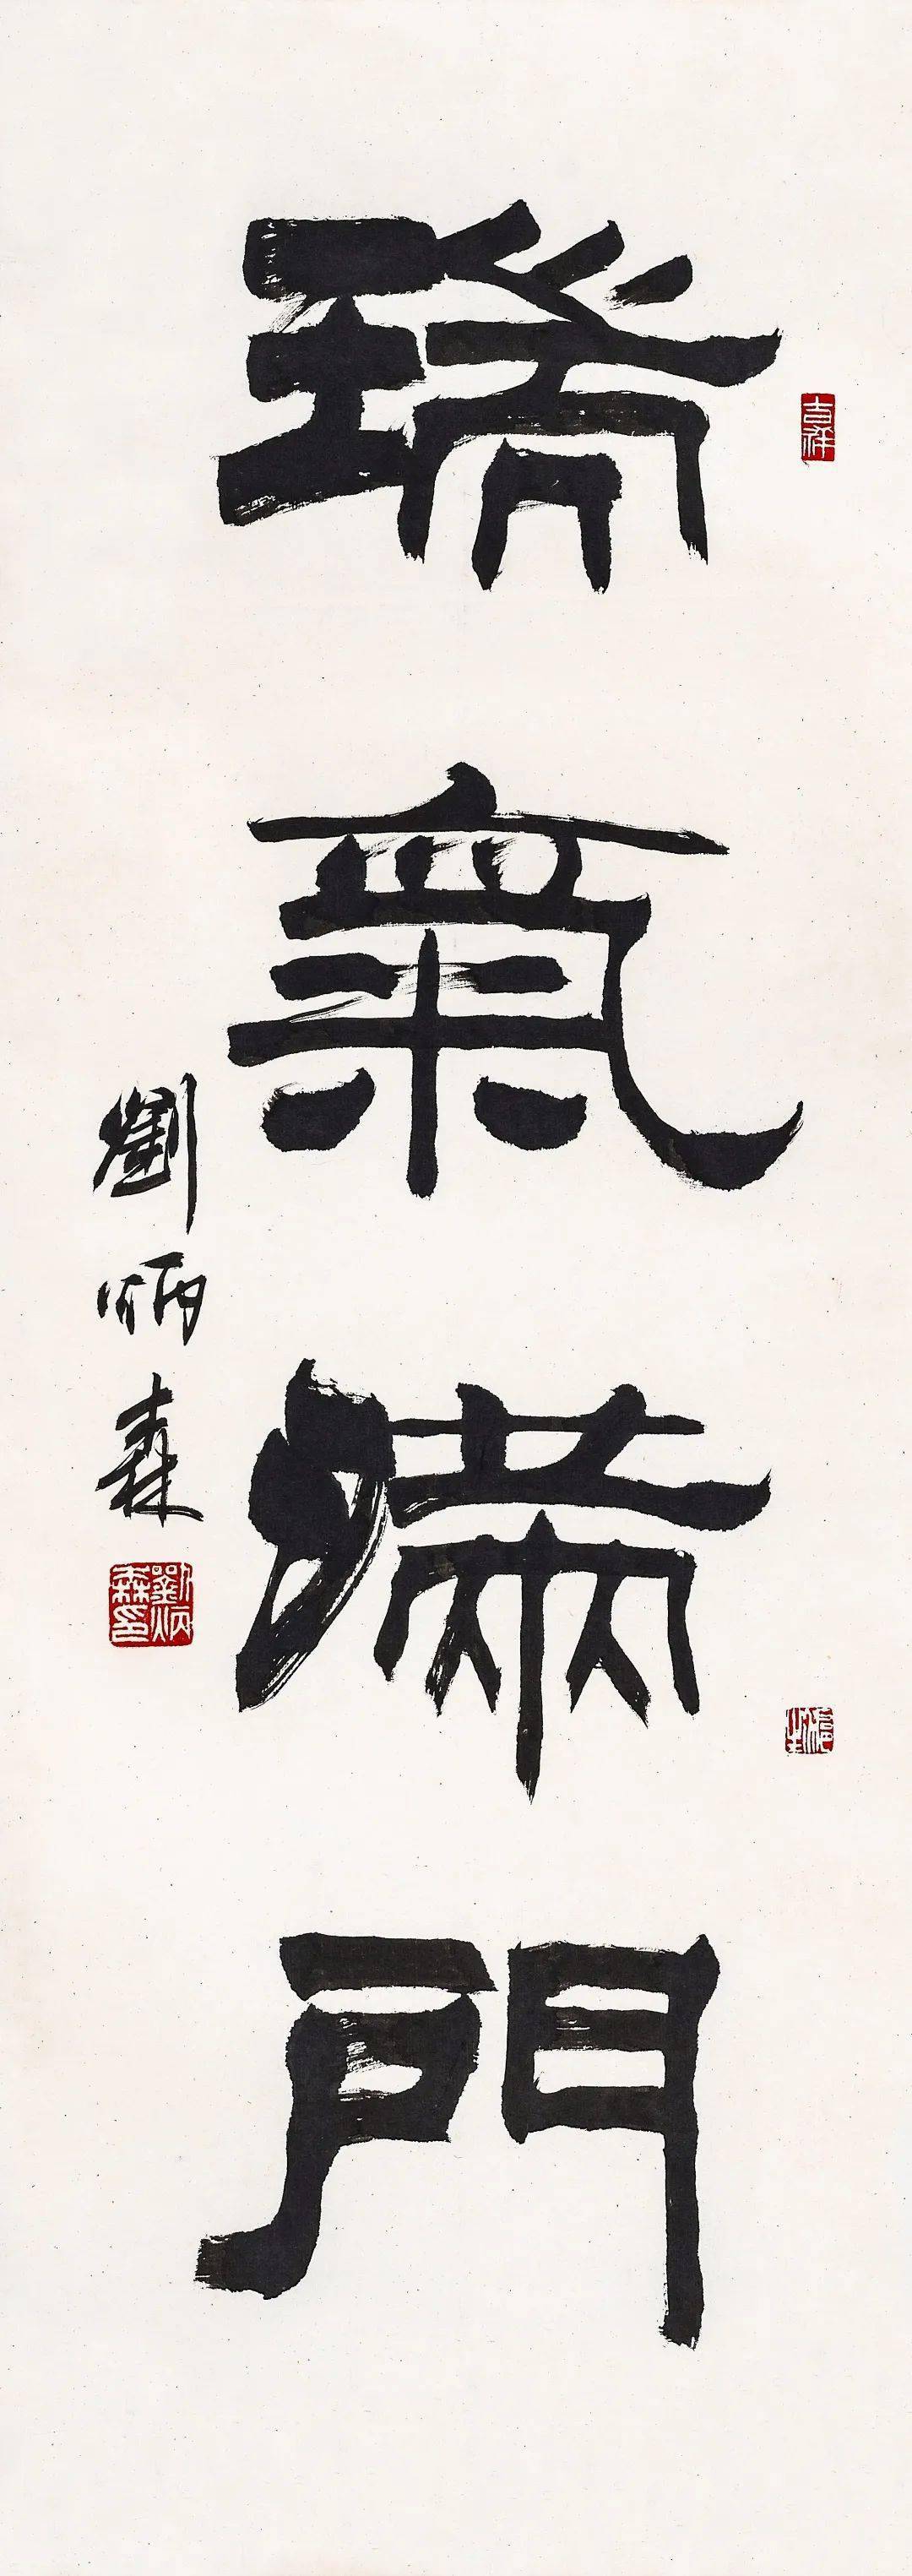 瑞氣滿門
劉炳森
吉祥
劉炳森印